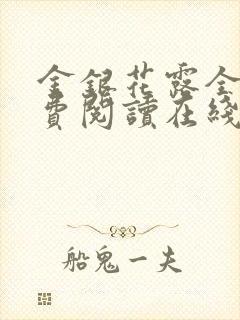 金銀花露全
費閱讀在綫
船鬼一夫